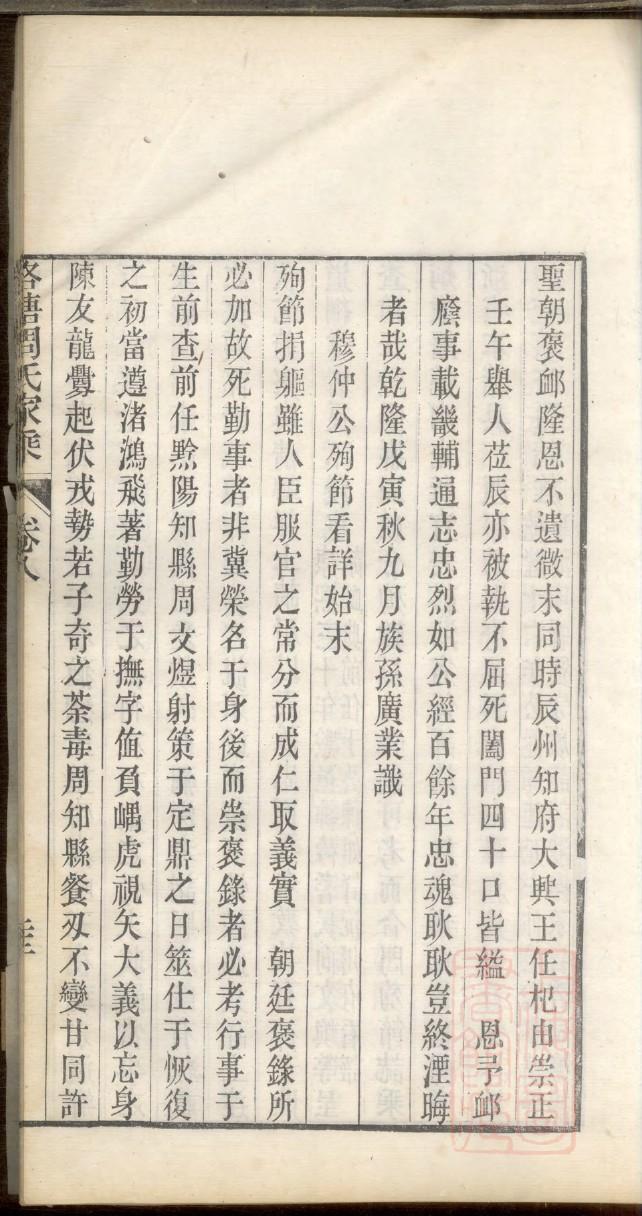 聖朝褒卹隆恩不遺微末同時辰州知府大興王任杞由崇正
壬午舉人莅辰亦被執不屈死闔門四十口皆縊 恩予卹
廕事載畿輔通志忠烈如公經百餘年忠魂耿耿豈終湮晦
者哉乾隆戊寅秋九月族孫廣業識
穆仲公殉節看詳始末
殉節捐軀雖人臣服官之常分而成仁取義實 朝廷褒錄所
必加故死勤事者非冀榮名于身後而崇褒錄者必考行事于
生前查前任黔陽知縣周文煜射策于定鼎之日筮仕于恢復
之初當遵渚鴻飛著勤勞于撫字値負嵎虎視矢大義以忘身
陳友龍釁起伏戎勢若子奇之荼毒周知縣餐刄不變甘同許
洛塘周氏家乘 卷八 三十三